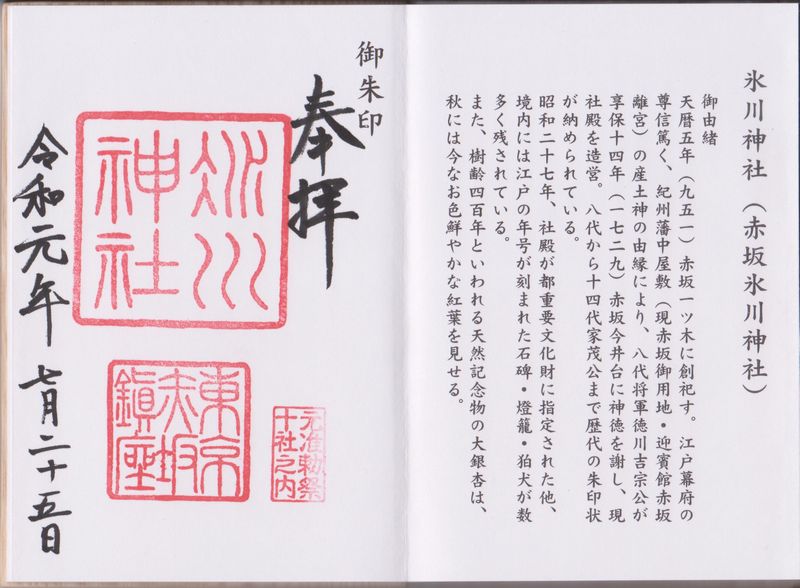 氷川神社（赤坂氷川神社）
御由緒
天暦五年（九五一）赤坂一ツ木に創祀す。江戸幕府の
尊信篤く、紀州藩中屋敷（現赤坂御用地・迎賓館赤坂
離宮）の産土神の由縁により、八代将軍徳川吉宗公が
享保十四年（一七二九）赤坂今井台に神徳を謝し、現
社殿を造営。八代から十四代家茂公まで歴代の朱印状
が納められている。
昭和二十七年、社殿が都重要文化財に指定された他、
境内には江戸の年号が刻まれた石碑・燈籠・狛犬が数
多く残されている。
また、樹齢四百年といわれる天然記念物の大銀杏は、
秋には今なお色鮮やかな紅葉を見せる。
御朱印
奉拝
氷川
神社
元准勅祭
十社之内
東京
赤坂
鎮座
令和元年七月二十五日